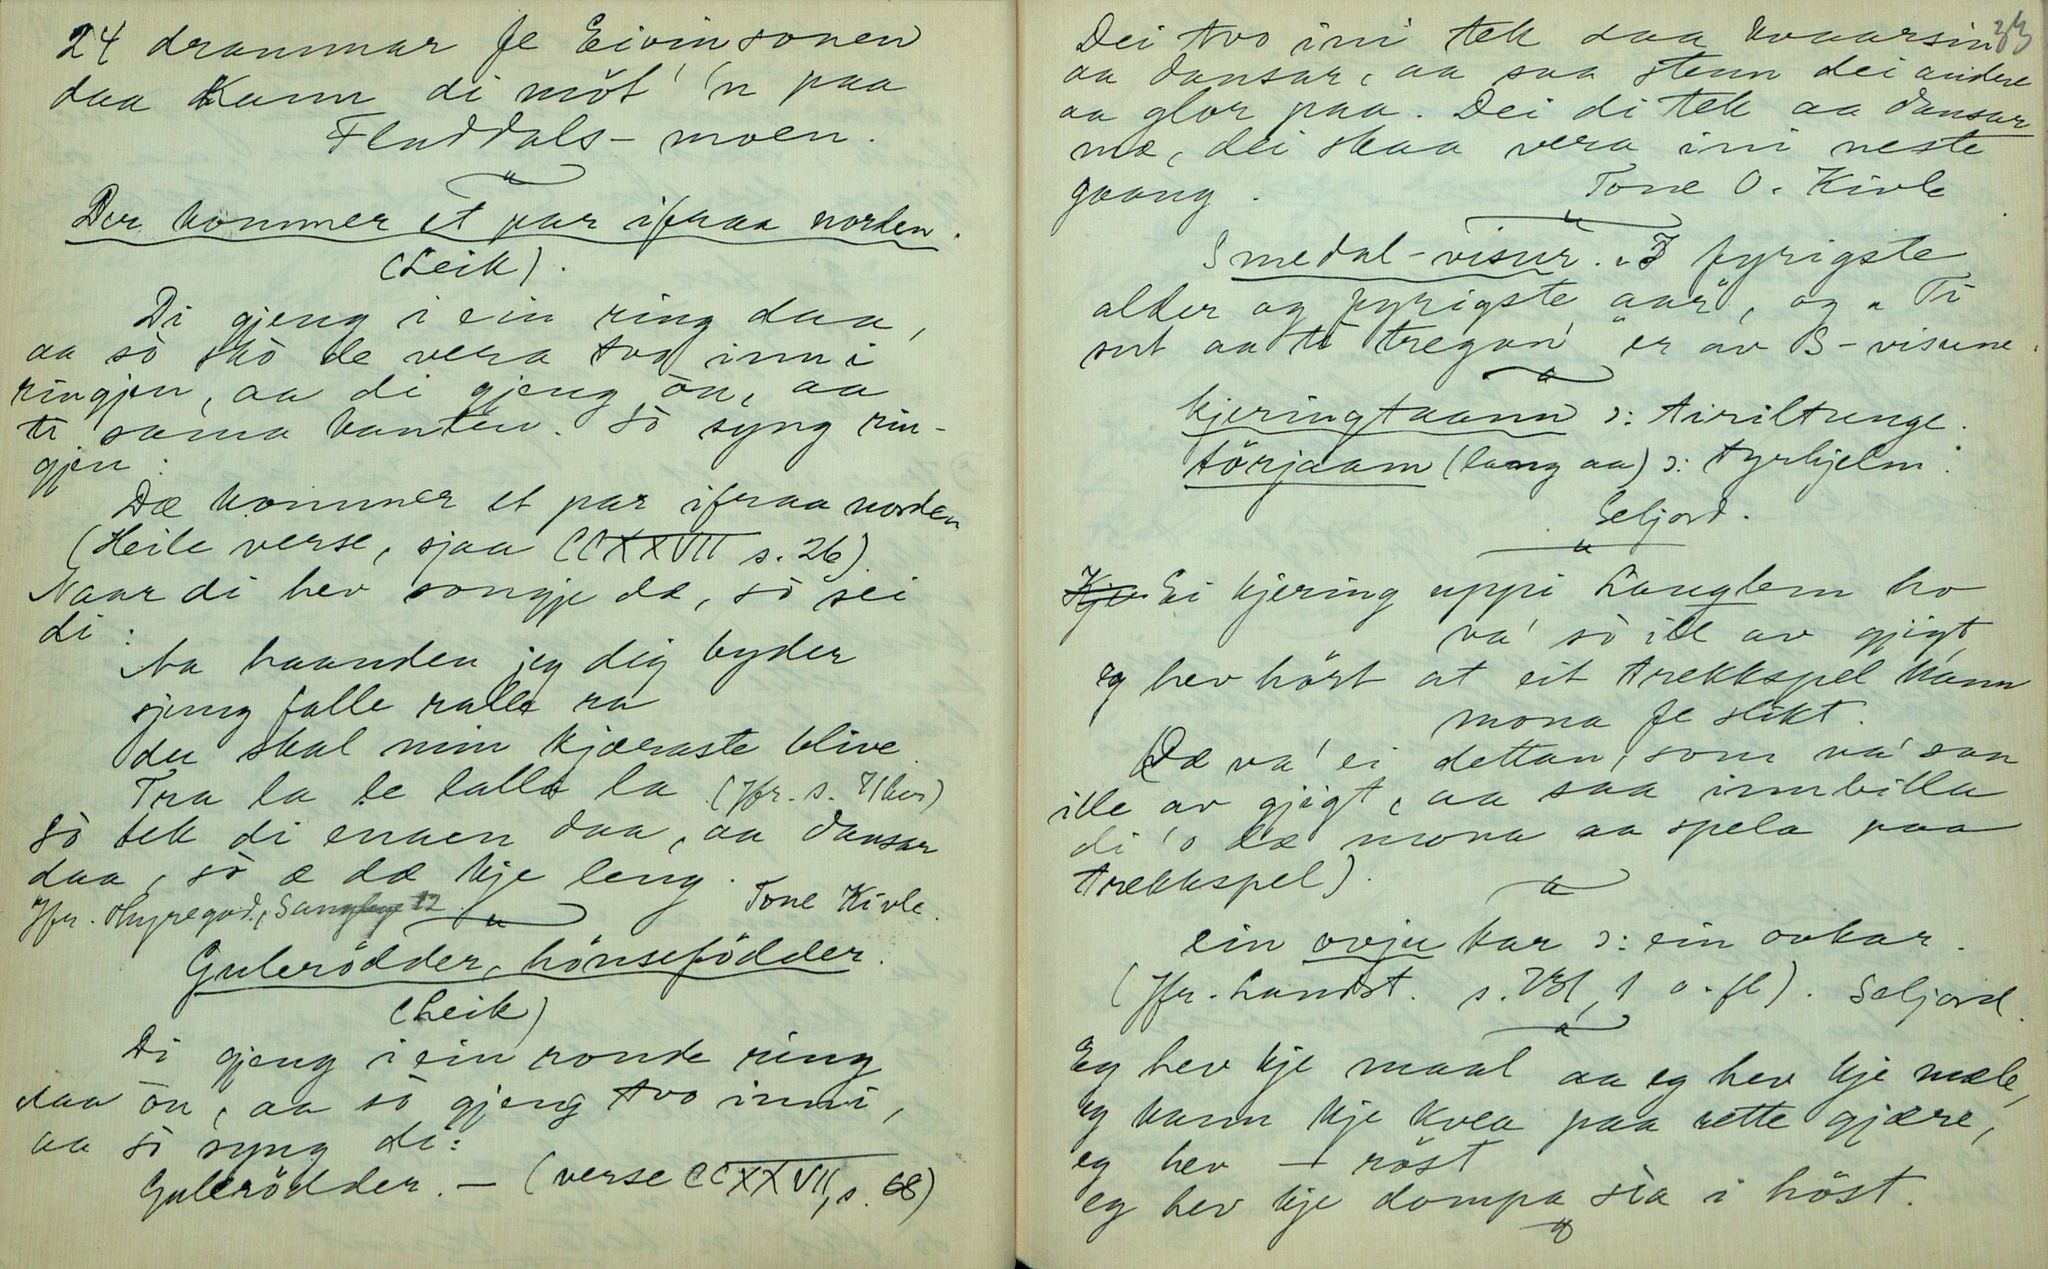 24 drammar fe Eivinsonen
daa kann di möt' 'n paa
Fladdals-moen.
Der kommer et par ifraa norden.
(Leik).
Di gjeng i ein ring daa,
aa sò skò de vera tvo inn i
ringjen, aa di gjeng òn, aa
ti sama kanten. Sò syng rin-
gjen:
Dæ kommer et par ifraa norden
(Heile verse, sjaa CCXXVII s. 26).
Naar di hev songje dæ, sò sei
di:
Aa haanden jeg dig byder
sjung falle ralle ra
du skal min kjæraste blive
Tra la le lalla la (Jfr. s. 71 her)
Sò tek di enaen daa, aa dansar
daa, sò æ dæ kje leng.
Tone Kivle.
Jfr. Thyregod, 
Gulerödder, hönsefödder.
(Leik)
Di gjeng i ein ronde ring
daa òn, aa sò gjeng tvo inni,
aa sò syng di:
Gulerödder. — (verse CCXXVII, s. 68)
33
Dei tvo ini tek daa kvaarsin
aa dansar, aa saa stenn dei andere
aa glor paa. Dei di tek aa dansar
mæ, dei skaa vera ini neste
gaang.
Tone O. Kivle
Smedal-visur. "I fyrigste
alder og fyrigste aar", og "Ti
sut aa ti tregan" er av S-visune.
Kjeringtaann ɔ: tiriltunge.
törjaam (lang aa) ɔ: tyrhjelm.
Seljord.
Ei kjering uppi Langlem ho
va' sò ill av gjigt,
eg hev hört at eit trekkspel kann
mona fe slikt.
(Dæ va' ei dettan, som va' san
ille av gjigt, aa saa innbilla
di 'o dæ mona aa spela paa
trekkspel).
ein ovju kar ɔ: ein ovkar.
(Jfr. Landst. s. o. fl). Seljord.
Eg hev kje maal aa eg hev kje mæle,
eg kann kje kvea paa rette gjære,
eg hev — röst
eg hev kje dompa sia i höst.